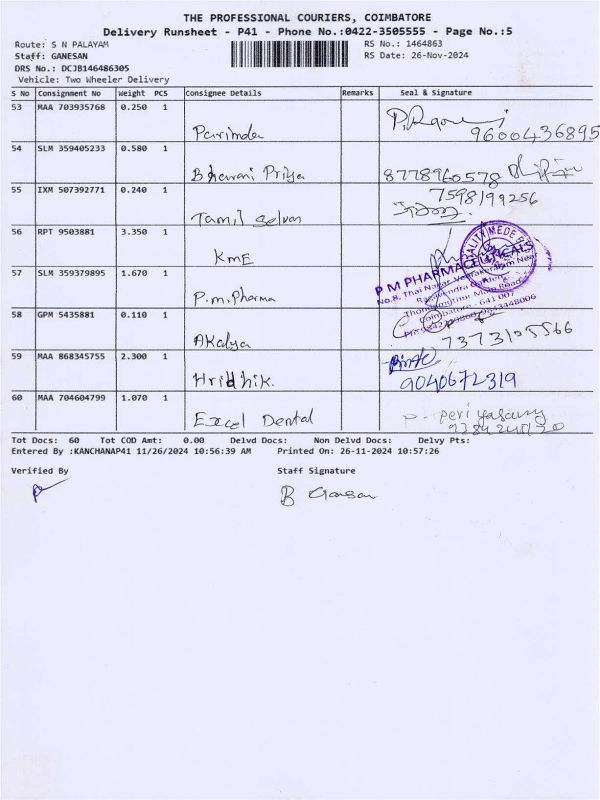 THE PROFESSIONAL COURIERS, COIMBATORE
Delivery Runsheet - P41 - Phone No.:0422-3505555 - Page No.:5
Route: S N PALAYAM
RS No.: 1464863
Staff: GANESAN
RS Date: 26-Nov-2024
DRS No.: DCJB146486305
Vehicle: Two Wheeler Delivery
S No Consignment No Weight PCS Consignee Details Remarks Seal & Signature
53 MAA 703935768 0.250 1
Parimda 9600436895
54 SLM 359405233 0.580 1
Bhavani Priya 8778960578
55 IXM 507392771 0.240 1 7598199256
Tamil Selvan
56 RPT 9503881 3.350 1
KME
57 SLM 359379895 1.670 1
P.m.Pharma
P M PHARMACEUTICALS
No.8, Thai Nagar, Veerakeralam Near
Rajavendra Garden,
Thondamuthur Main Road
Coimbatore - 641 007
58 GPM 5435881 0.110 1
Akalya 7373105566
59 MAA 868345755 2.300 1
Hridhik. 9040672319
60 MAA 704604799 1.070 1
Excel Dental P. periyasamy
Tot Docs: 60 Tot COD Amt: 0.00 Delvd Docs: Non Delvd Docs: Delvy Pts:
Entered By :KANCHANAP41 11/26/2024 10:56:39 AM Printed On: 26-11-2024 10:57:26
Verified By Staff Signature
B Ganesan